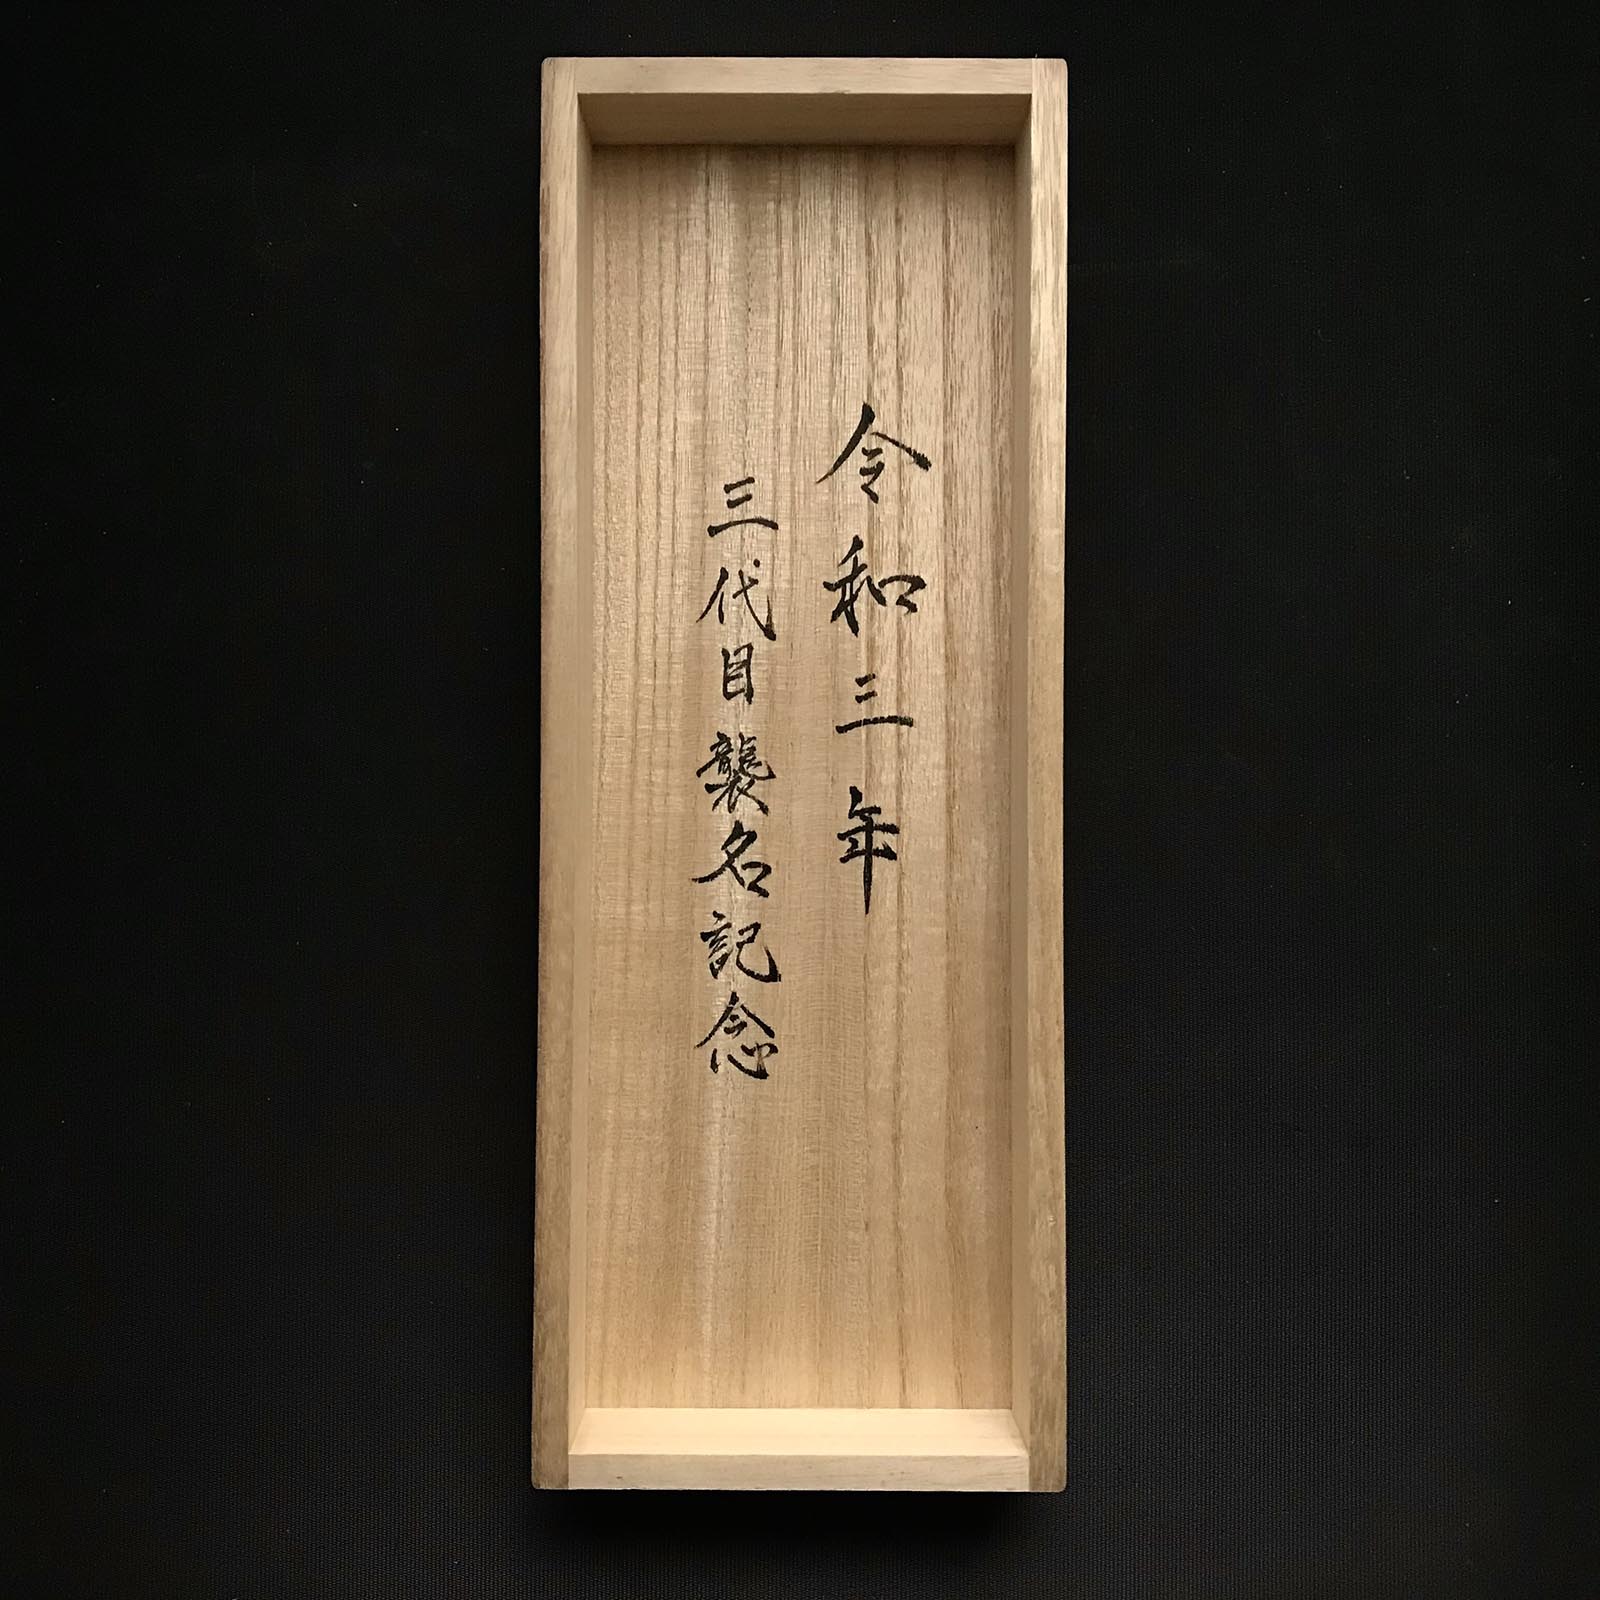 令和三年
三代目襲名記念